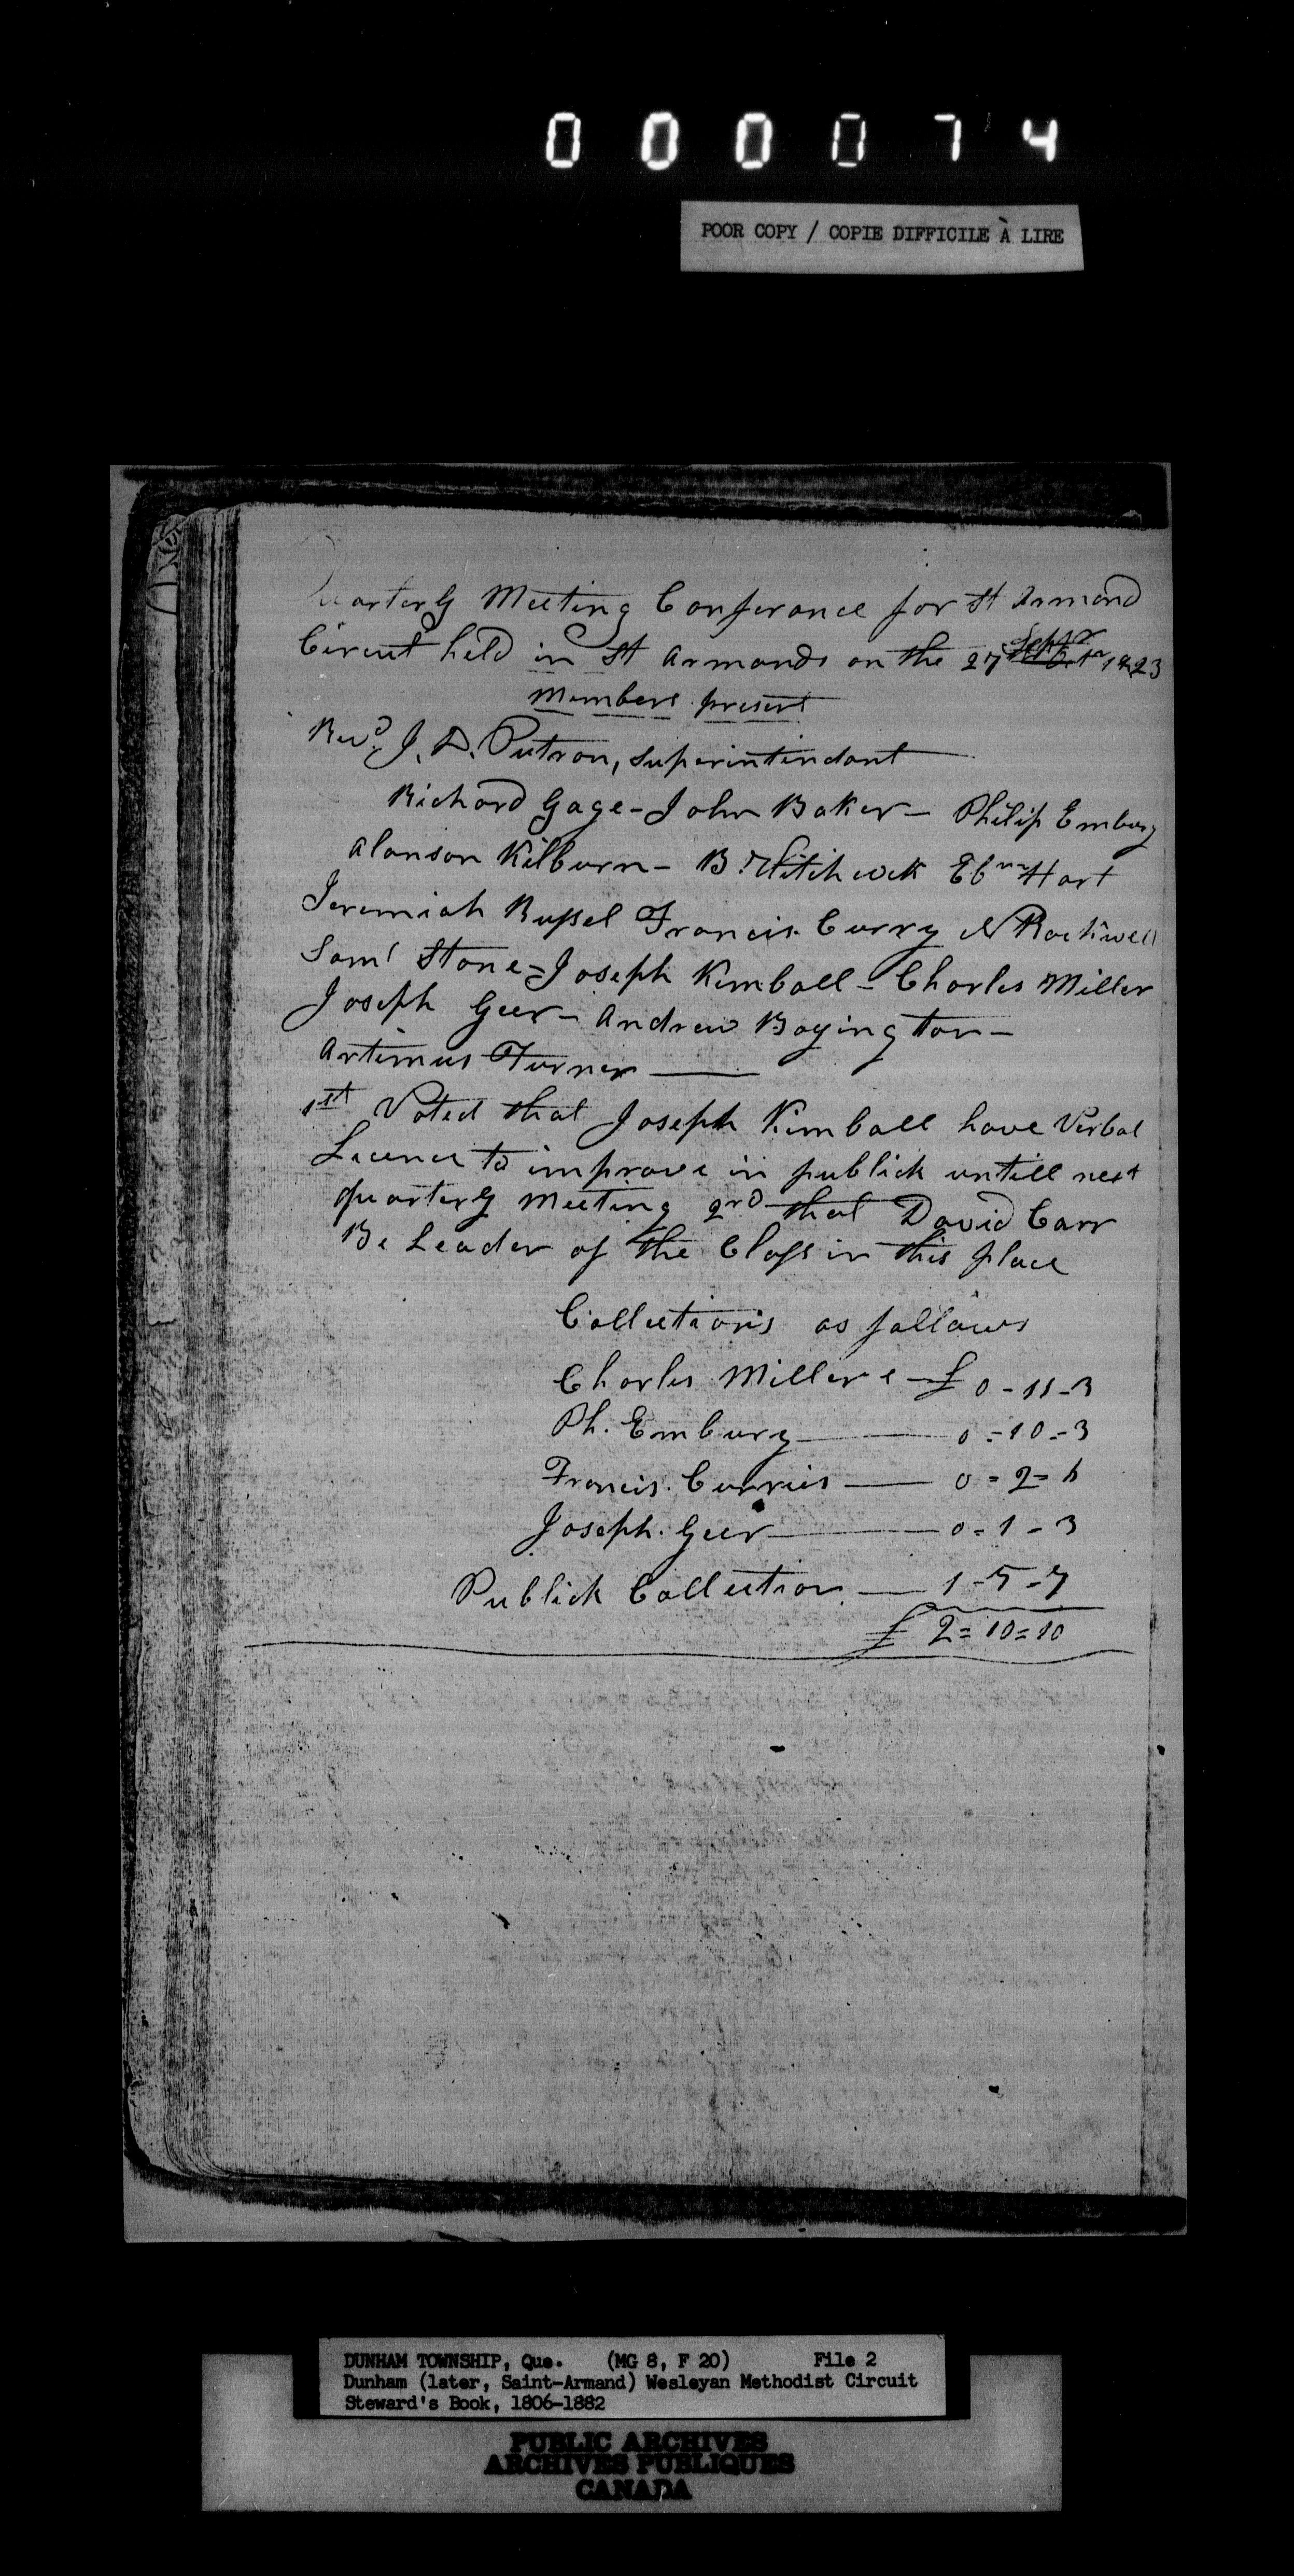 000074
POOR COPY / COPIE DIFFICILE À LIRE
Quarterly Meeting Conferance for St Armond
Circuit held in St Armonds on the 27 Septr 1823
Members present
Revd. J. D. Putron, Superintendant
Richard Gage - John Baker - Philip Embury
Alonson Kilburn - B. Hitchcock Ebnr Hart
Jeremiah Russel Francis Curry N Rockwell
Saml Stone - Joseph Kimball - Charles Miller
Joseph Geer - Andrew Boyington -
Artimus Turner
1st Voted that Joseph Kimball have Verbal
Licence to improve in publick untill next
quarterly Meeting 2nd that David Carr
Be Leader of the Class in this place
Collections as follows
Charles Millers £ 0-11-3
Ph. Embury 0=10=3
Francis Curries 0=2=6
Joseph Geer 0=1-3
Publick Collection 1-5-7
£ 2=10=10
DUNHAM TOWNSHIP, Que. (MG 8, F 20) File 2
Dunham (later, Saint-Armand) Wesleyan Methodist Circuit
Steward's Book, 1806-1882
PUBLIC ARCHIVES
ARCHIVES PUBLIQUES
CANADA